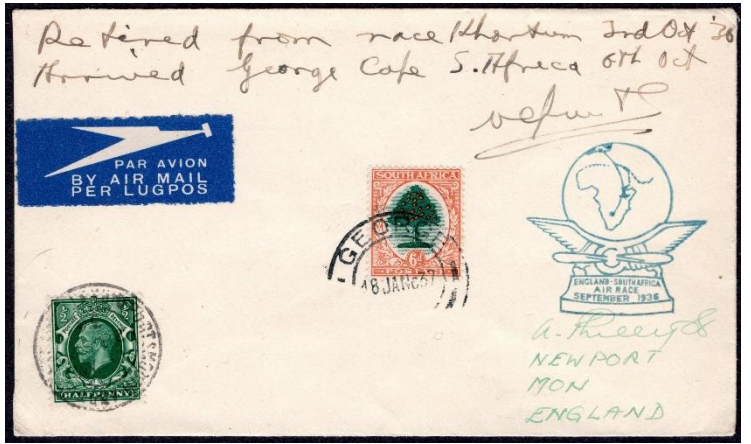 Retired from race Khartum 3rd Oct '36
Arrived George Cape S. Africa 6th Oct
PAR AVION
BY AIR MAIL
PER LUGPOS
SOUTH AFRICA
6d
POSTAGE
GEORGE
18 JAN 37
ENGLAND-SOUTH AFRICA
AIR RACE
SEPTEMBER 1936
½ D
HALFPENNY
A. Phillips
NEWPORT
MON
ENGLAND